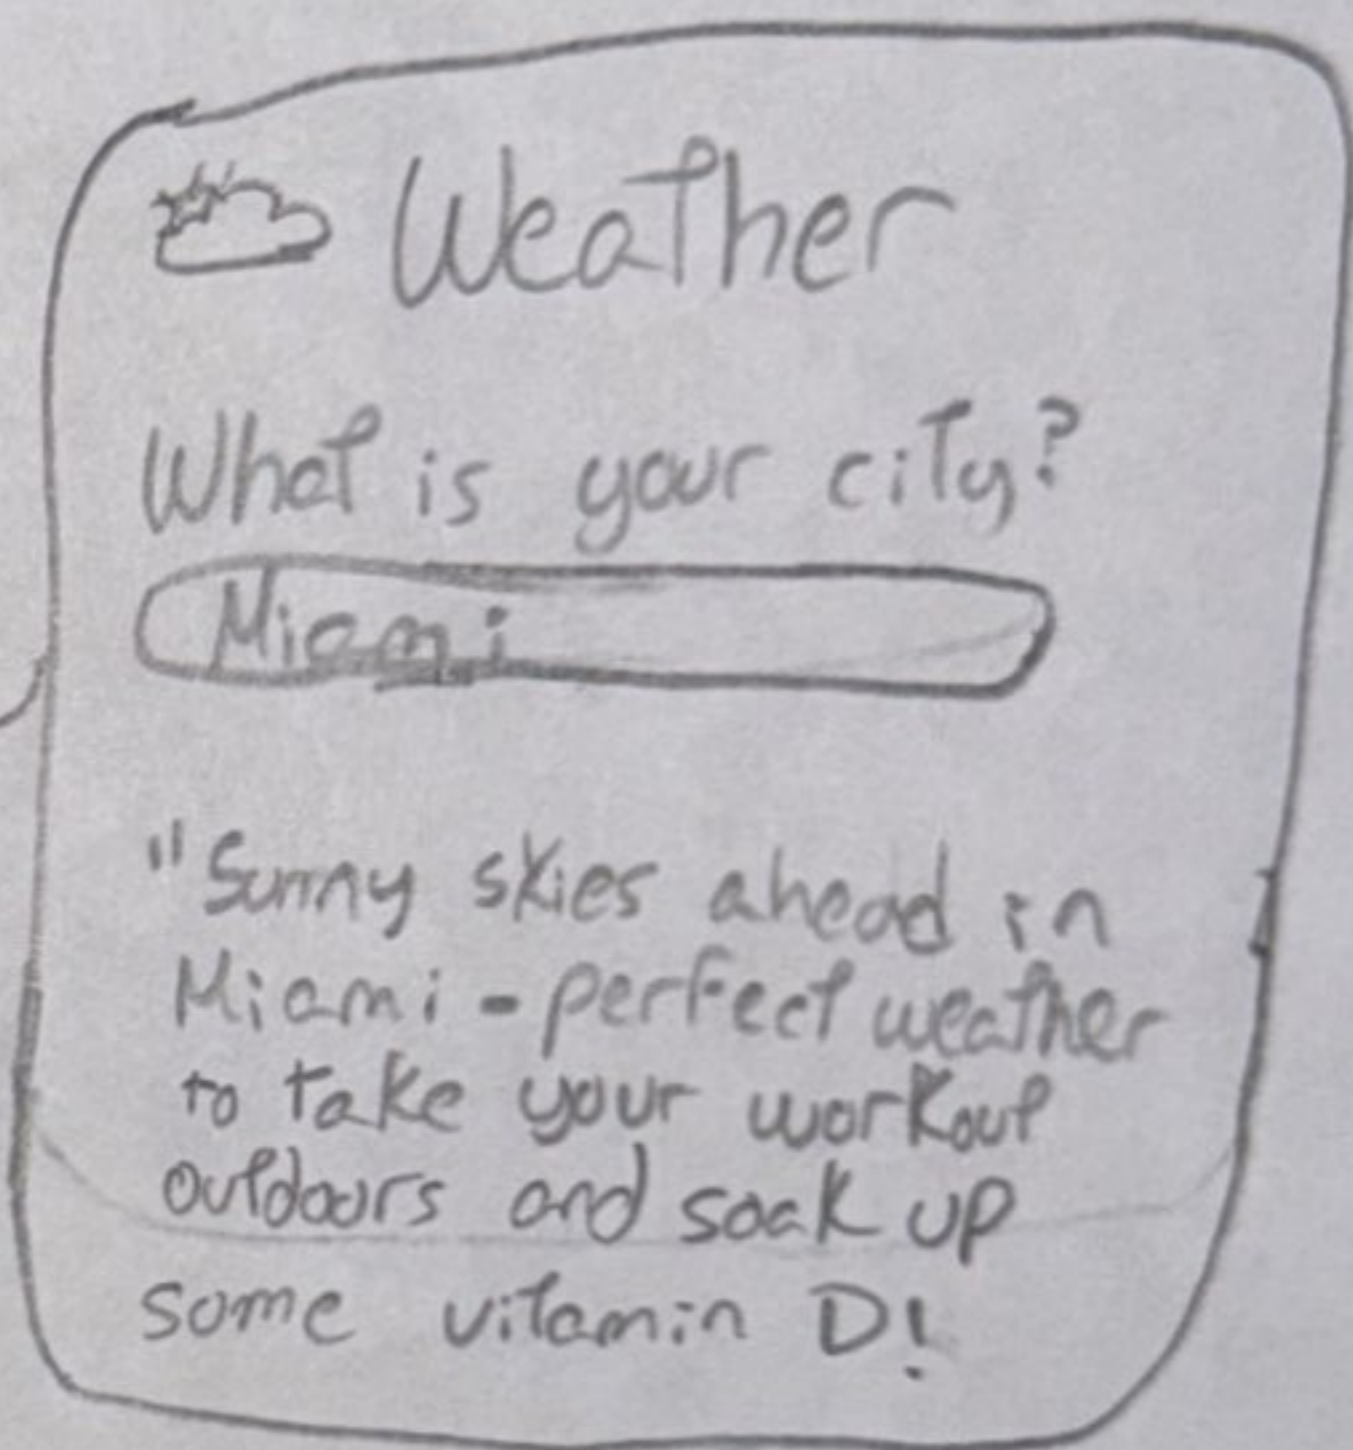 Weather
What is your city?
Miami
"Sunny skies ahead in
Miami - perfect weather
to take your workout
outdoors and soak up
some vitamin D!